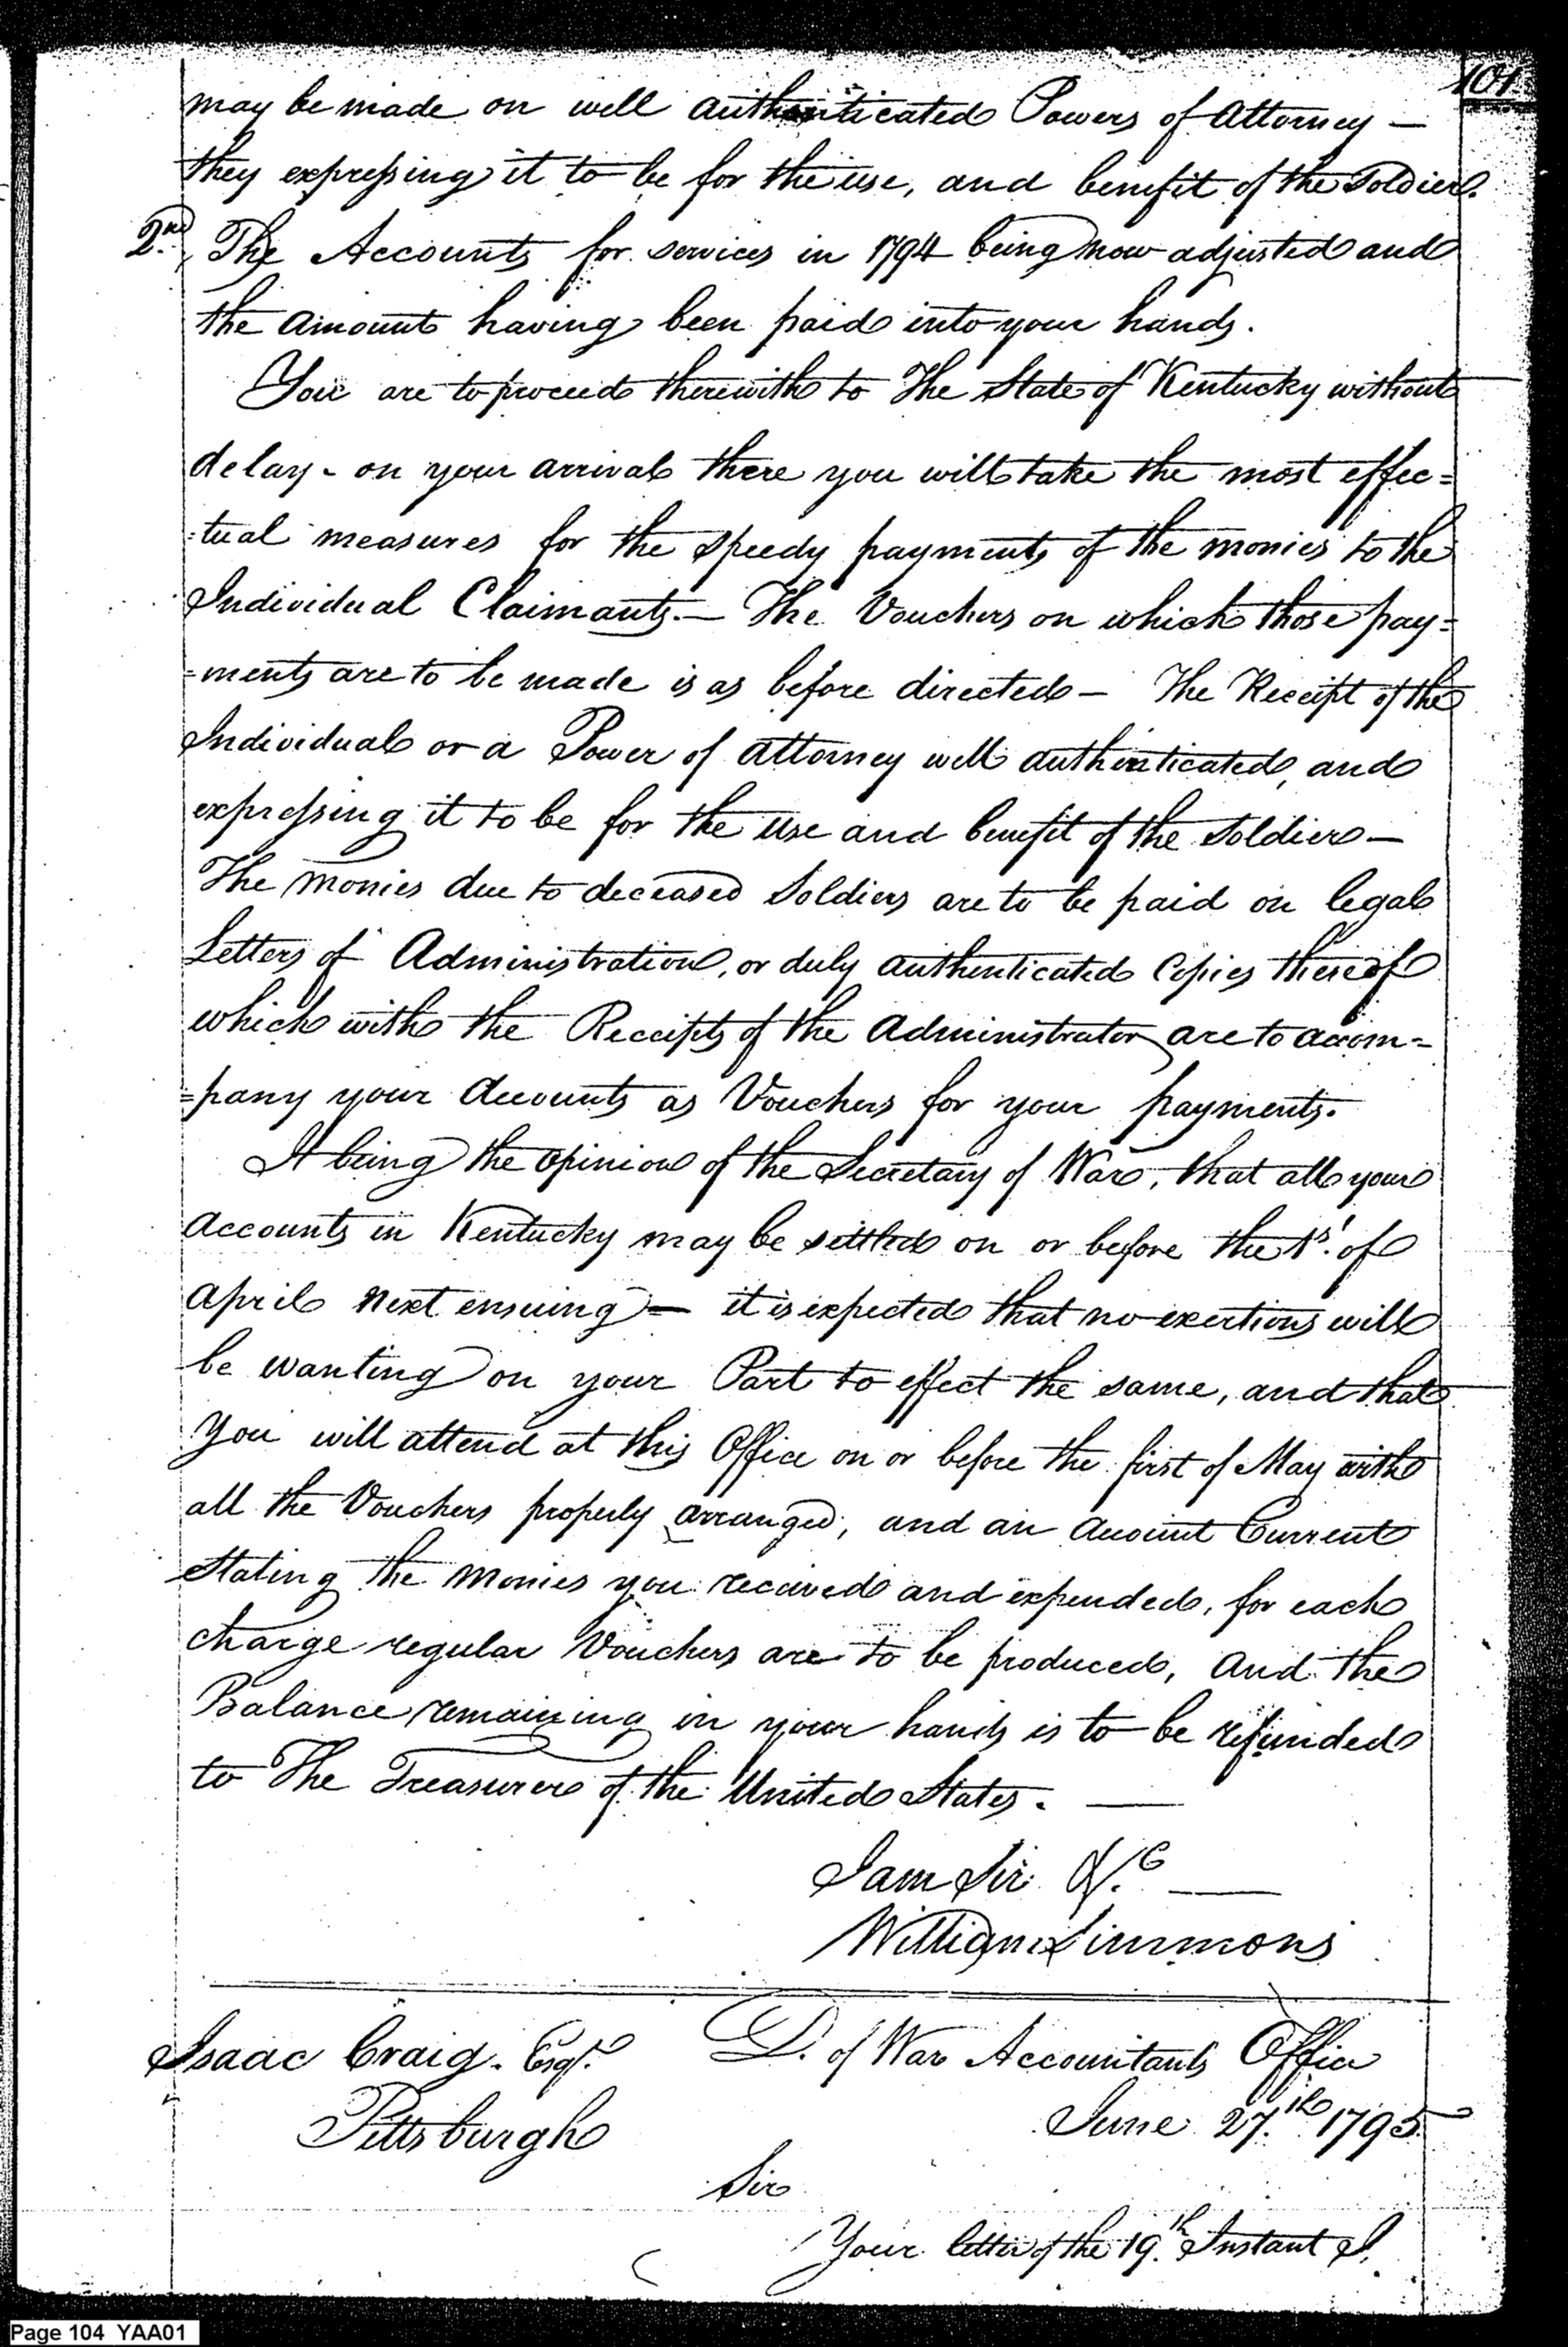 101
may be made on well authenticated Powers of Attorney —
they expressing it to be for the use, and benefit of the Soldier.
2nd. The Accounts for services in 1794 being now adjusted and
the amount having been paid into your hands.
You are to proceed therewith to The State of Kentucky without
delay - on your arrival there you will take the most effec=
=tual measures for the speedy payments of the monies to the
Individual Claimants. — The Vouchers on which those pay=
=ments are to be made is as before directed — The Receipt of the
Individual or a Power of attorney well authenticated, and
expressing it to be for the use and benefit of the Soldier —
The monies due to deceased Soldiers are to be paid on legal
Letters of Administration, or duly authenticated Copies thereof
which with the Receipts of the Administrator are to accom=
=pany your Accounts as Vouchers for your payments.
It being the opinion of the Secretary of War, that all your
Accounts in Kentucky may be settled on or before the 1st. of
April next ensuing — it is expected that no exertions will
be wanting on your Part to effect the same, and that
you will attend at this Office on or before the first of May with
all the Vouchers properly arranged, and an Account Current
Stating the Monies you received and expended, for each
charge regular Vouchers are to be produced, and the
Balance remaining in your hands is to be refunded
to The Treasurer of the United States. —
I am Sir &.c —
William Simmons
Isaac Craig. Esqr. D. of War Accountants Office
Pittsburgh June 27.th 1795
Sir
Your letter of the 19.th Instant I.
Page 104 YAA01